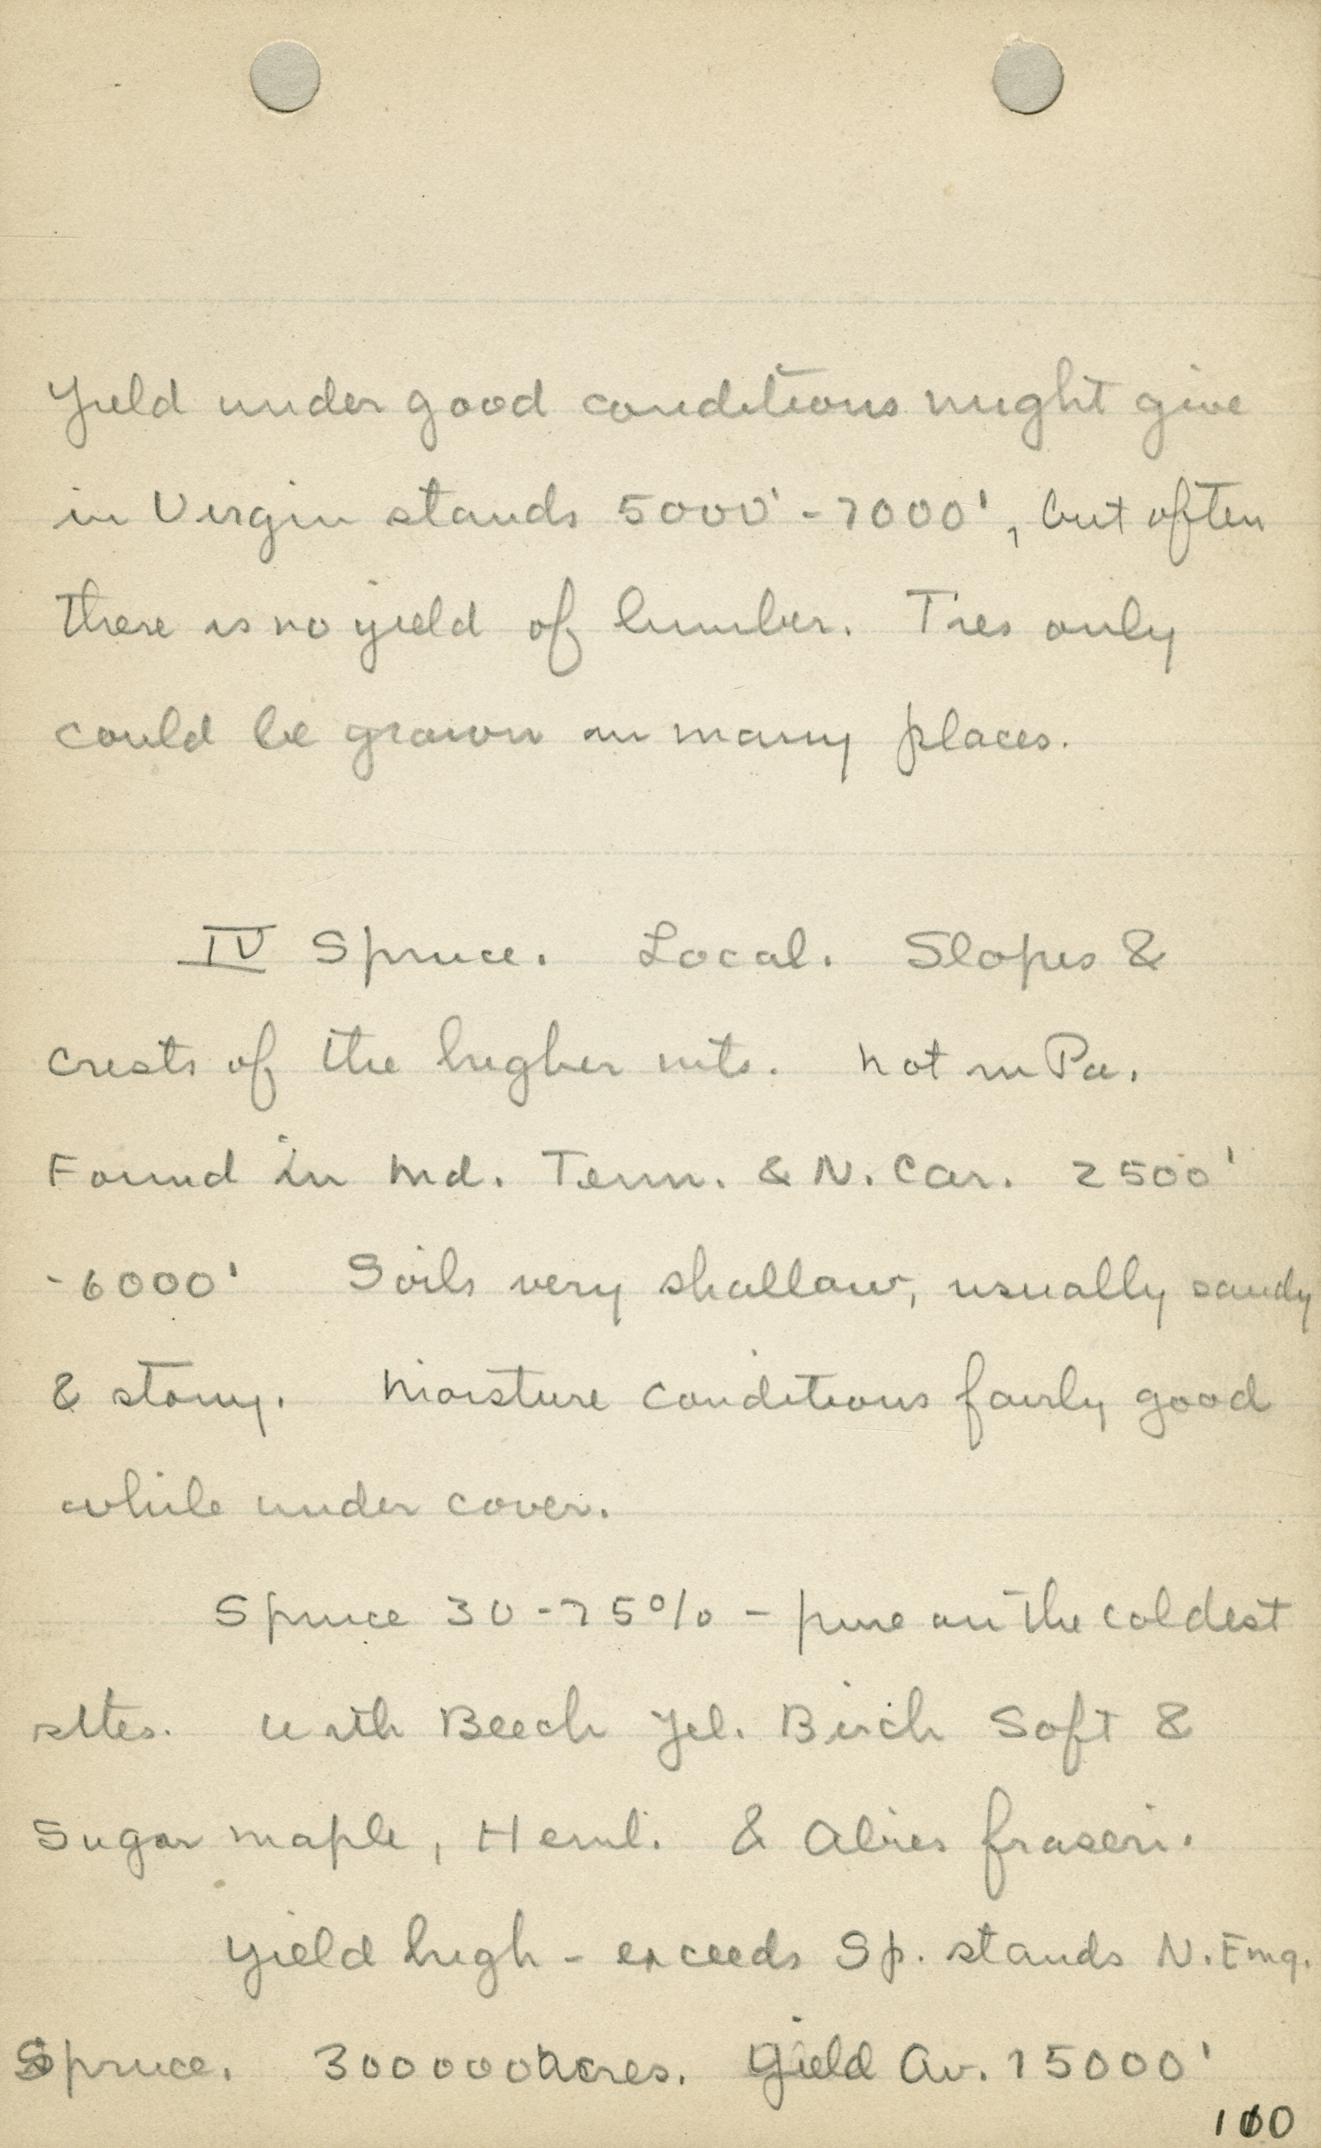 Yield under good conditions might give
in Virgin stands 5000' - 7000', but often
there is no yield of lumber. Ties only
could be grown in many places.
IV Spruce. Local. Slopes &
crests of the higher mts. Not in Pa.
Found in Md. Tenn. & N. Car. 2500'
- 6000' Soils very shallow, usually sandy
& stony. Moisture conditions fairly good
while under cover.
Spruce 30-75% - pure on the coldest
sites. With Beech Yel. Birch Soft &
Sugar maple, Heml. & Abies fraseri.
Yield high - exceeds Sp. stands N. Eng.
Spruce. 300000 Acres. Yield Av. 15000'
100